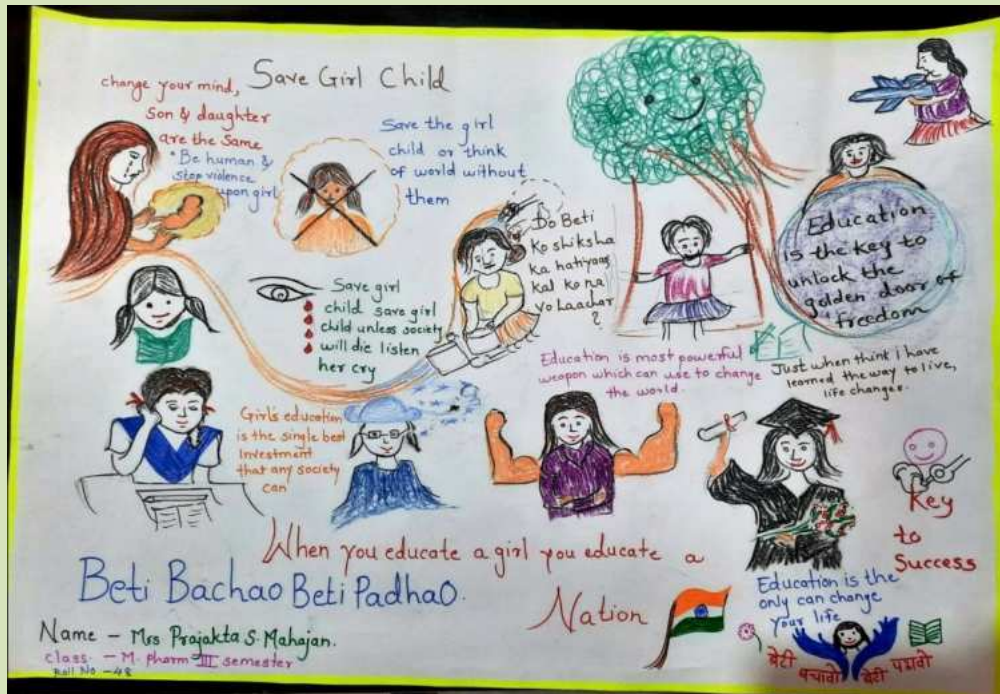 Save Girl Child
change your mind,
Son & daughter
are the Same
"Be human &
stop violence
upon girl
Save the girl
child or think
of world without
them
Do Beti
ko shiksha
ka hatiyaar
kal ko na
vo Laachar
?
Education
is the key to
unlock the
golden door of
freedom
Save girl
child save girl
child unless society
will die listen
her cry
Education is most powerful
weapon which can use to change
the world.
Just when think i have
learned the way to live,
life changes.
Girl's education
is the single best
Investment
that any society
can
Key
to
Success
When you educate a girl you educate a
Nation
Beti Bachao Beti Padhao.
Education is the
only can change
your life
Name - Mrs Prajakta S. Mahajan.
class. - M. pharm III semester
Roll No - 48
बेटी
बचावो बेटी पढावो